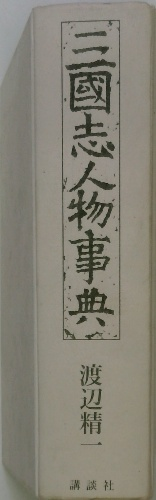 三國志人物事典
渡辺精一
講談社